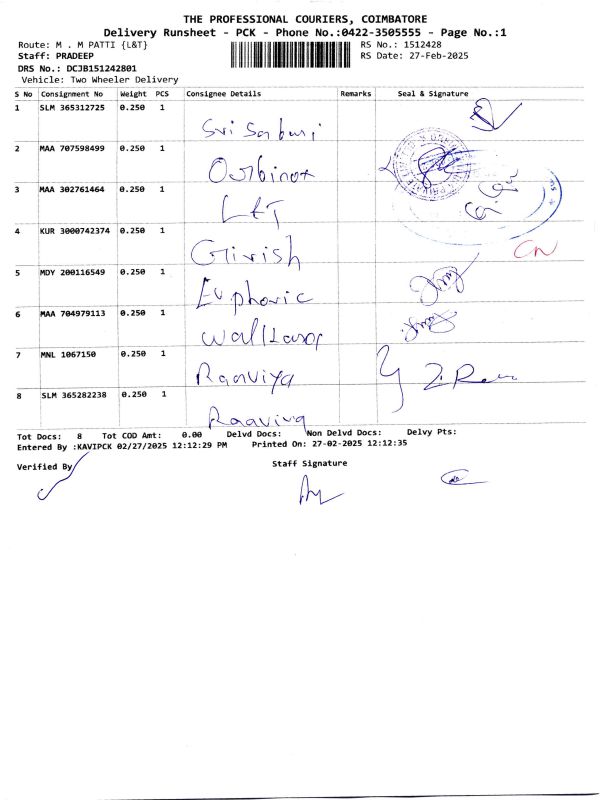 THE PROFESSIONAL COURIERS, COIMBATORE
Delivery Runsheet - PCK - Phone No.:0422-3505555 - Page No.:1
Route: M . M PATTI {L&T} RS No.: 1512428
Staff: PRADEEP RS Date: 27-Feb-2025
DRS No.: DCJB151242801
Vehicle: Two Wheeler Delivery
S No Consignment No Weight PCS Consignee Details Remarks Seal & Signature
1 SLM 365312725 0.250 1
Sri Saburi
2 MAA 707598499 0.250 1
3 MAA 302761464 0.250 1
L&T
4 KUR 3000742374 0.250 1
Girish CN
5 MDY 200116549 0.250 1
Euphoric
6 MAA 704979113 0.250 1
7 MNL 1067150 0.250 1
Raaviya
8 SLM 365282238 0.250 1
Raaviya
Tot Docs: 8 Tot COD Amt: 0.00 Delvd Docs: Non Delvd Docs: Delvy Pts:
Entered By :KAVIPCK 02/27/2025 12:12:29 PM Printed On: 27-02-2025 12:12:35
Verified By Staff Signature